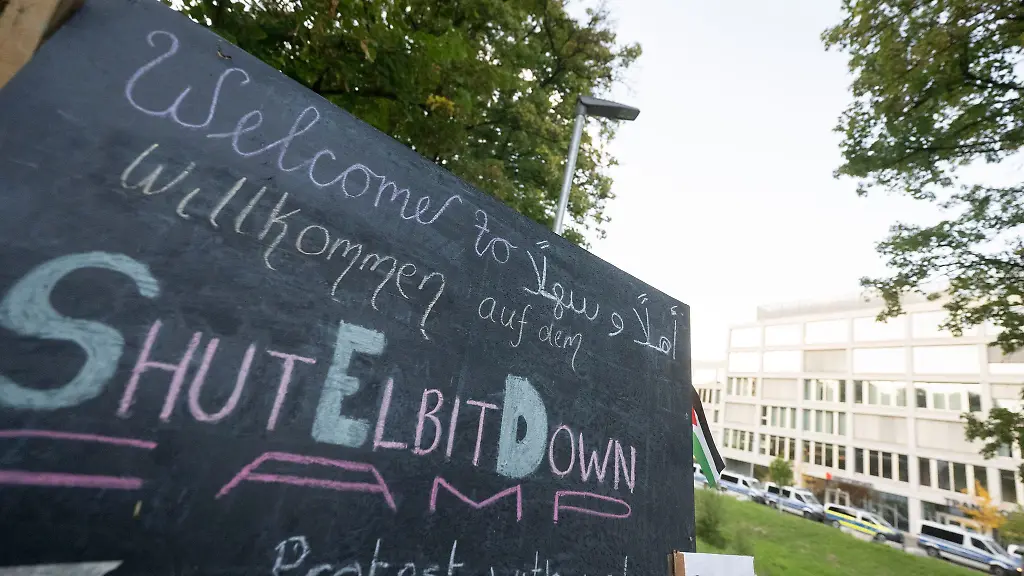 Welcome to
أهلاً و سهلاً
Willkommen auf dem
SHUT ELBIT DOWN
CAMP
Protest with